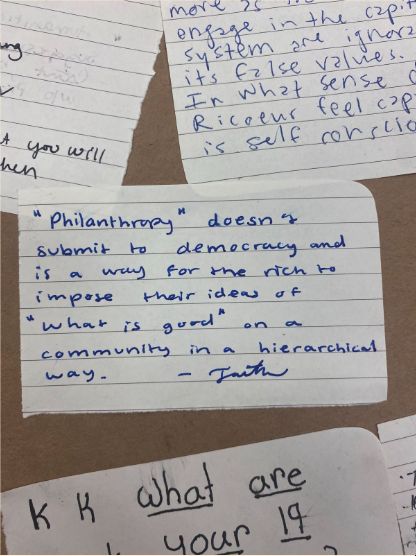 more as
engage in the capi
system are ignora
its false values.
In what sense
Ricoeur feel cap
is self conscio
ng
you will
hen
"Philanthropy" doesn't
submit to democracy and
is a way for the rich to
impose their ideas of
"what is good" on a
community in a hierarchical
way. - Faith
K K what are
your 19